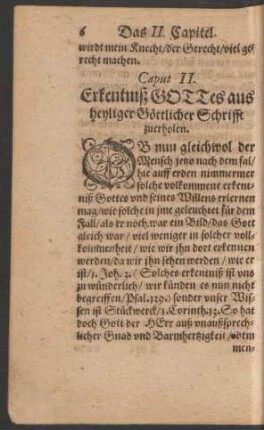 6 Das II. Capitel.
wirdt mein Knecht/der Gerecht/viel ge-
recht machen.
Caput II.
Erkentniß GOTTes aus
heyliger Göttlicher Schrifft
zuerholen.
OB nun gleichwol der
Mensch jetzo nach dem fal/
hie auff erden nimmermer
solche volkommene erkent-
niß Gottes vnd seines Willens erlernen
mag/wie solche in jme geleuchtet für dem
Fall/als er noch war ein Bild/das Gott
gleich war/ viel weniger in solcher voll-
kommenheit / wie wir jhn dort erkennen
werden/da wir jhn sehen werden / wie er
ist/1. Joh. 3. (Solches erkentniß ist vns
zu wünderlich/ wir künden es nun nicht
begreiffen/Psal.139.) sonder vnser Wis-
sen ist Stückwerck/1.Corinth.13. So hat
doch Gott der HErr auß vnaußsprech-
licher Gnad vnd Barmhertzigkeit / dem
men-